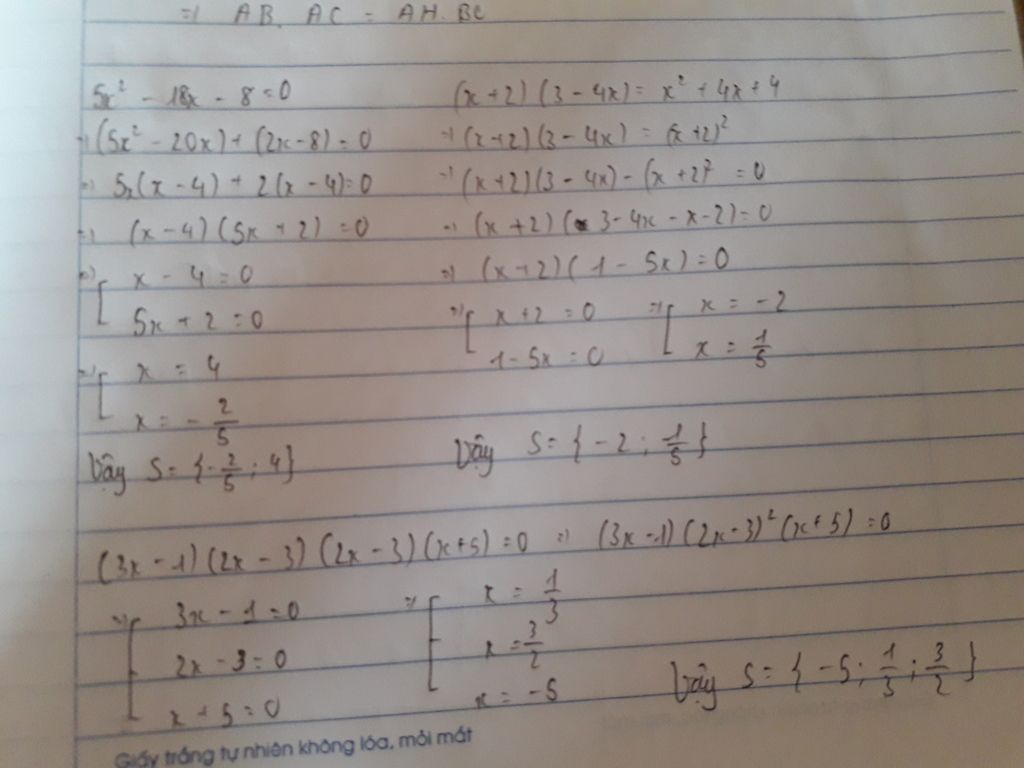 => AB. AC = AH. BC
5x² - 18x - 8 = 0
=> (5x² - 20x) + (2x - 8) = 0
=> 5x(x - 4) + 2(x - 4) = 0
=> (x - 4)(5x + 2) = 0
=> [ x - 4 = 0
5x + 2 = 0
=> [ x = 4
x = - 2/5
Vậy S = { -2/5 ; 4 }
(x + 2)(3 - 4x) = x² + 4x + 4
=> (x + 2)(3 - 4x) = (x + 2)²
=> (x + 2)(3 - 4x) - (x + 2)² = 0
=> (x + 2)(3 - 4x - x - 2) = 0
=> (x + 2)(1 - 5x) = 0
=> [ x + 2 = 0 => [ x = -2
1 - 5x = 0 x = 1/5
Vậy S = { -2 ; 1/5 }
(3x - 1)(2x - 3)(2x - 3)(x + 5) = 0 => (3x - 1)(2x - 3)²(x + 5) = 0
=> [ 3x - 1 = 0 => [ x = 1/3
2x - 3 = 0 x = 3/2
x + 5 = 0 x = -5
Vậy S = { -5 ; 1/3 ; 3/2 }
Giấy trắng tự nhiên không lóa, mỏi mắt